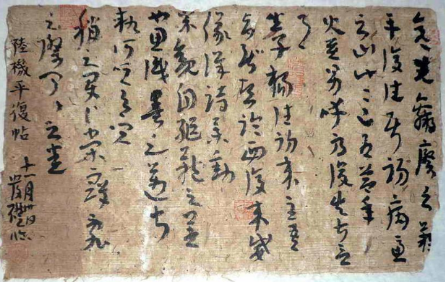 彦先羸瘵恐難
平復往屬初病慮
不止此此已為慶承
使唯男幸為復失前憂
耳
吳子楊往初来主吾
不能盡臨西復来威
儀詳跱舉動
成觀自軀體之美
也思識量之邁前
執所恒有宜
稱之夏榮寇亂
之際聞問不悉
陸機平復帖
十一月廿日
臨